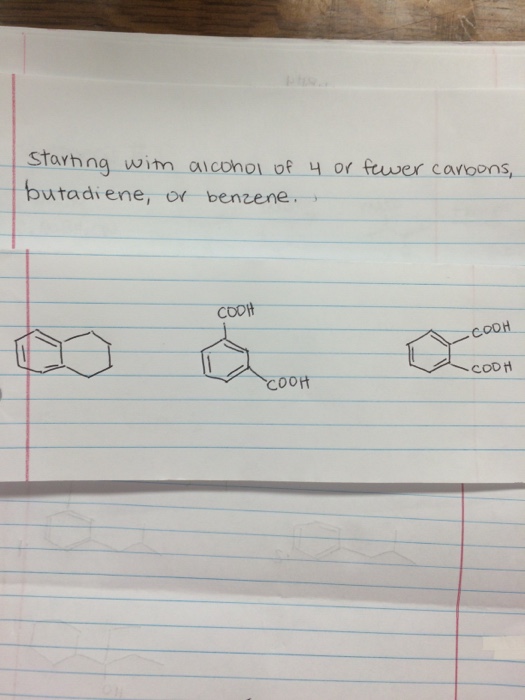 Starting with alcohol of 4 or fewer carbons,
butadiene, or benzene.
COOH
COOH
COOH
COOH